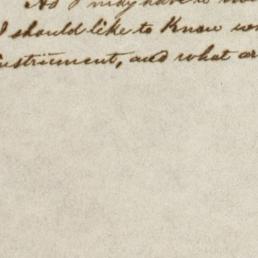 As I may have to
I should like to know
instrument, and what